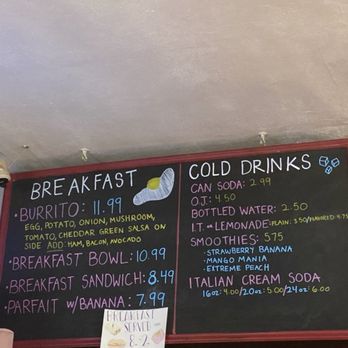 BREAKFAST
• BURRITO: 11.99
EGG, POTATO, ONION, MUSHROOM,
TOMATO, CHEDDAR GREEN SALSA ON
SIDE ADD: HAM, BACON, AVOCADO
• BREAKFAST BOWL: 10.99
• BREAKFAST SANDWICH: 8.49
PARFAIT W/BANANA: 7.99
BREAKFAST
SERVED
8-2
COLD DRINKS
CAN SODA: 2.99
O.J: 4.50
BOTTLED WATER: 2.50
I.T or LEMONADE: (PLAIN: 3.50/FLAVORED 4.75
SMOOTHIES: 5.75
• STRAWBERRY BANANA
• MANGO MANIA
• EXTREME PEACH
ITALIAN CREAM SODA
16oz: 4.00/20oz: 5.00/24oz: 6.00